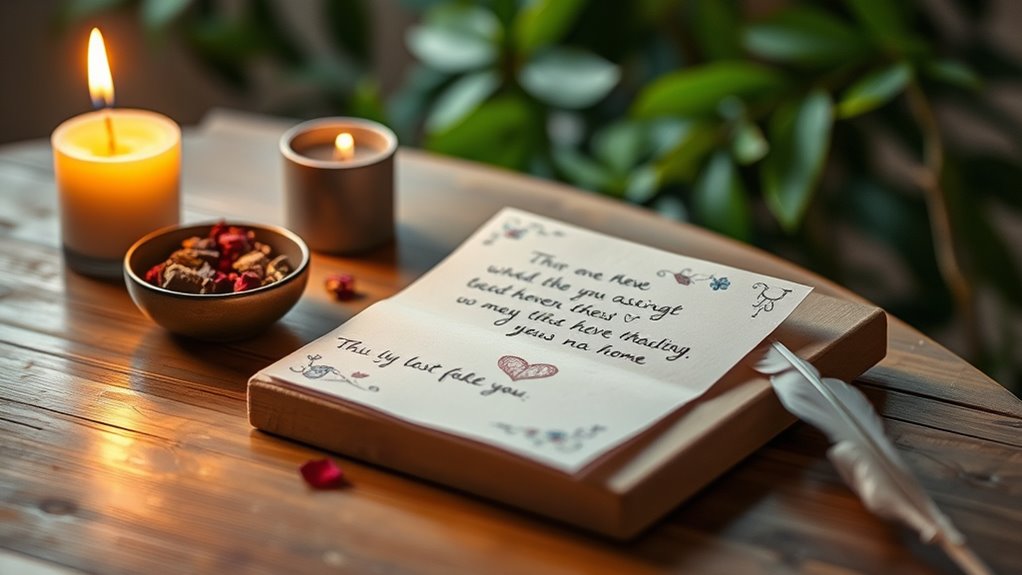 This are Heve
whild the you assingt
taud heven thess
wo mey this heve thading.
yeus na home
Thu ly last fake you.